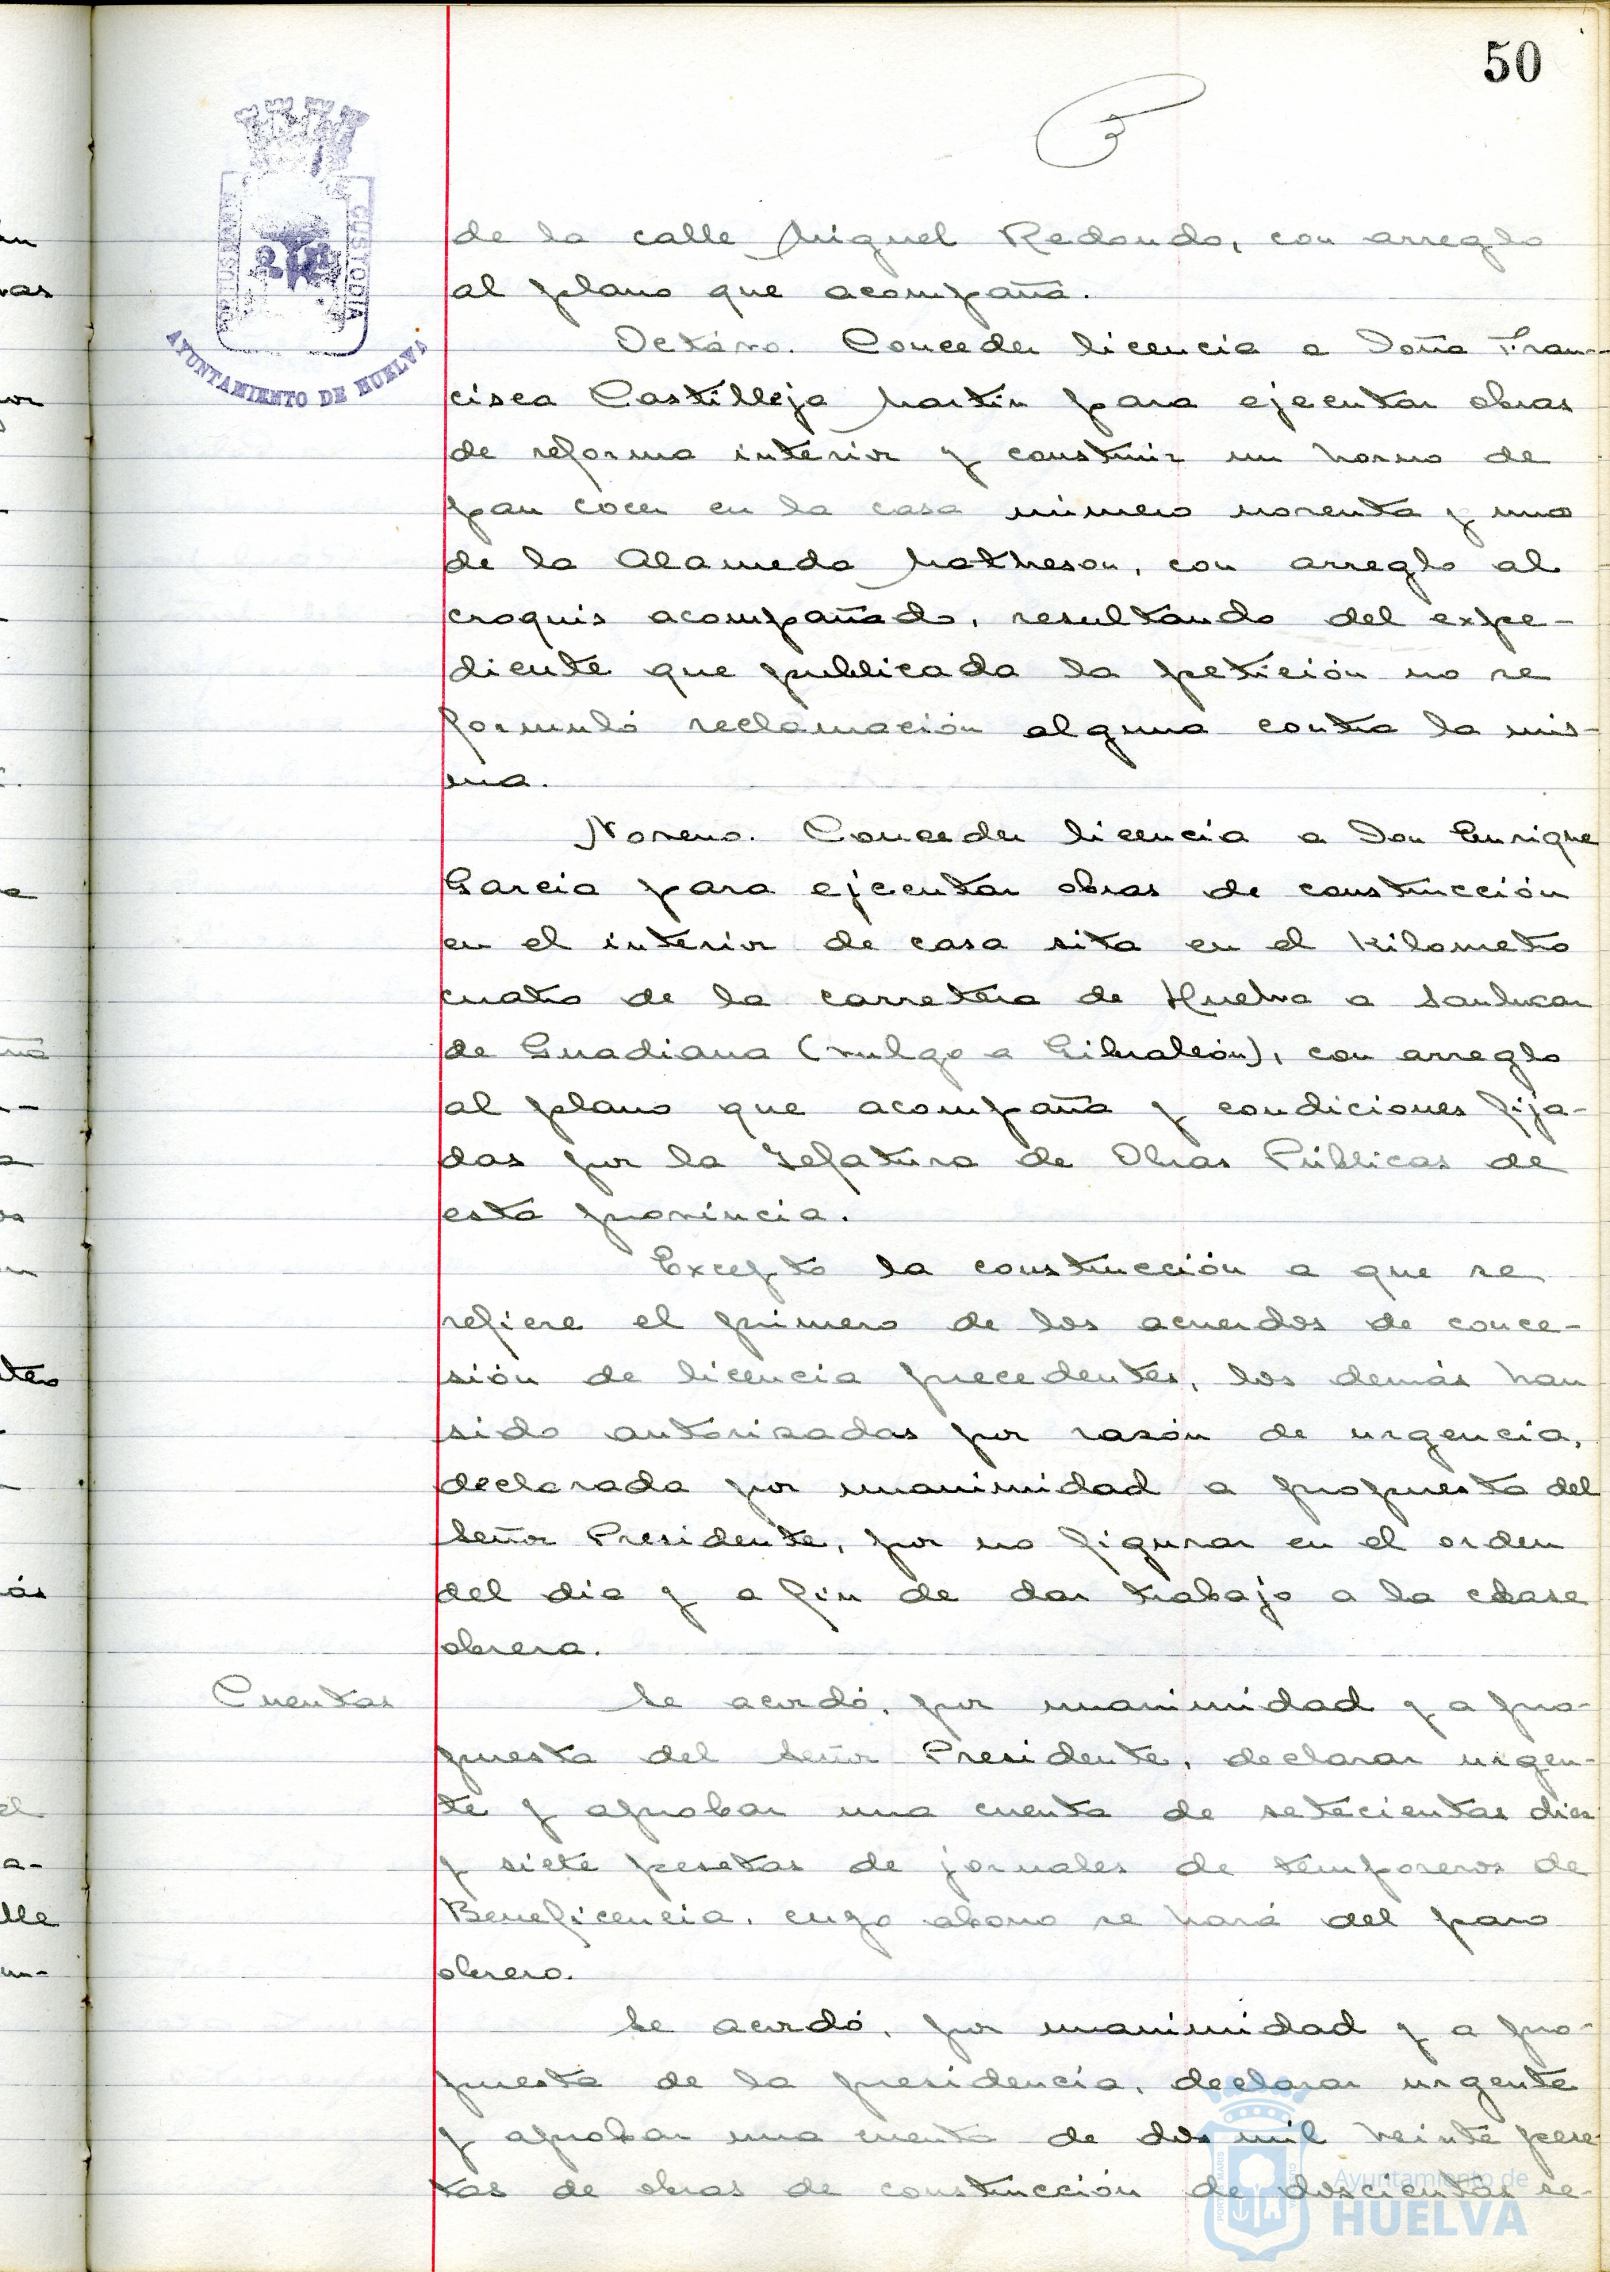 50
AYUNTAMIENTO DE HUELVA
CUSTODIA
de la calle Miguel Redondo, con arreglo
al plano que acompaña.
Octavo. Conceder licencia a Doña Fran-
cisca Castilleja Martín para ejecutar obras
de reforma interior y construir un horno de
pan cocer en la casa número noventa y uno
de la Alameda Matheson, con arreglo al
croquis acompañado, resultando del expe-
diente que publicada la petición no se
formuló reclamación alguna contra la mis-
ma.
Noveno. Conceder licencia a Don Enrique
García para ejecutar obras de construcción
en el interior de casa sita en el kilometro
cuatro de la carretera de Huelva a Sanlucar
de Guadiana (vulgo a Gibraleón), con arreglo
al plano que acompaña y condiciones fija-
das por la Jefatura de Obras Públicas de
esta provincia.
Excepto la construcción a que se
refiere el primero de los acuerdos de conce-
sión de licencia precedentes, los demás han
sido autorizadas por razón de urgencia,
declarada por unanimidad a propuesta del
Señor Presidente, por no figurar en el orden
del día y a fin de dar trabajo a la clase
obrera.
Cuentas
Se acordó, por unanimidad y a pro-
puesta del Señor Presidente, declarar urgen-
te y aprobar una cuenta de setecientas diez
y siete pesetas de jornales de temporeros de
Beneficencia, cuyo abono se hará del paro
obrero.
Se acordó, por unanimidad y a pro-
puesta de la presidencia, declarar urgente
y aprobar una cuenta de dos mil veinte pese-
tas de obras de construcción de doscientos se-
Ayuntamiento de
HUELVA